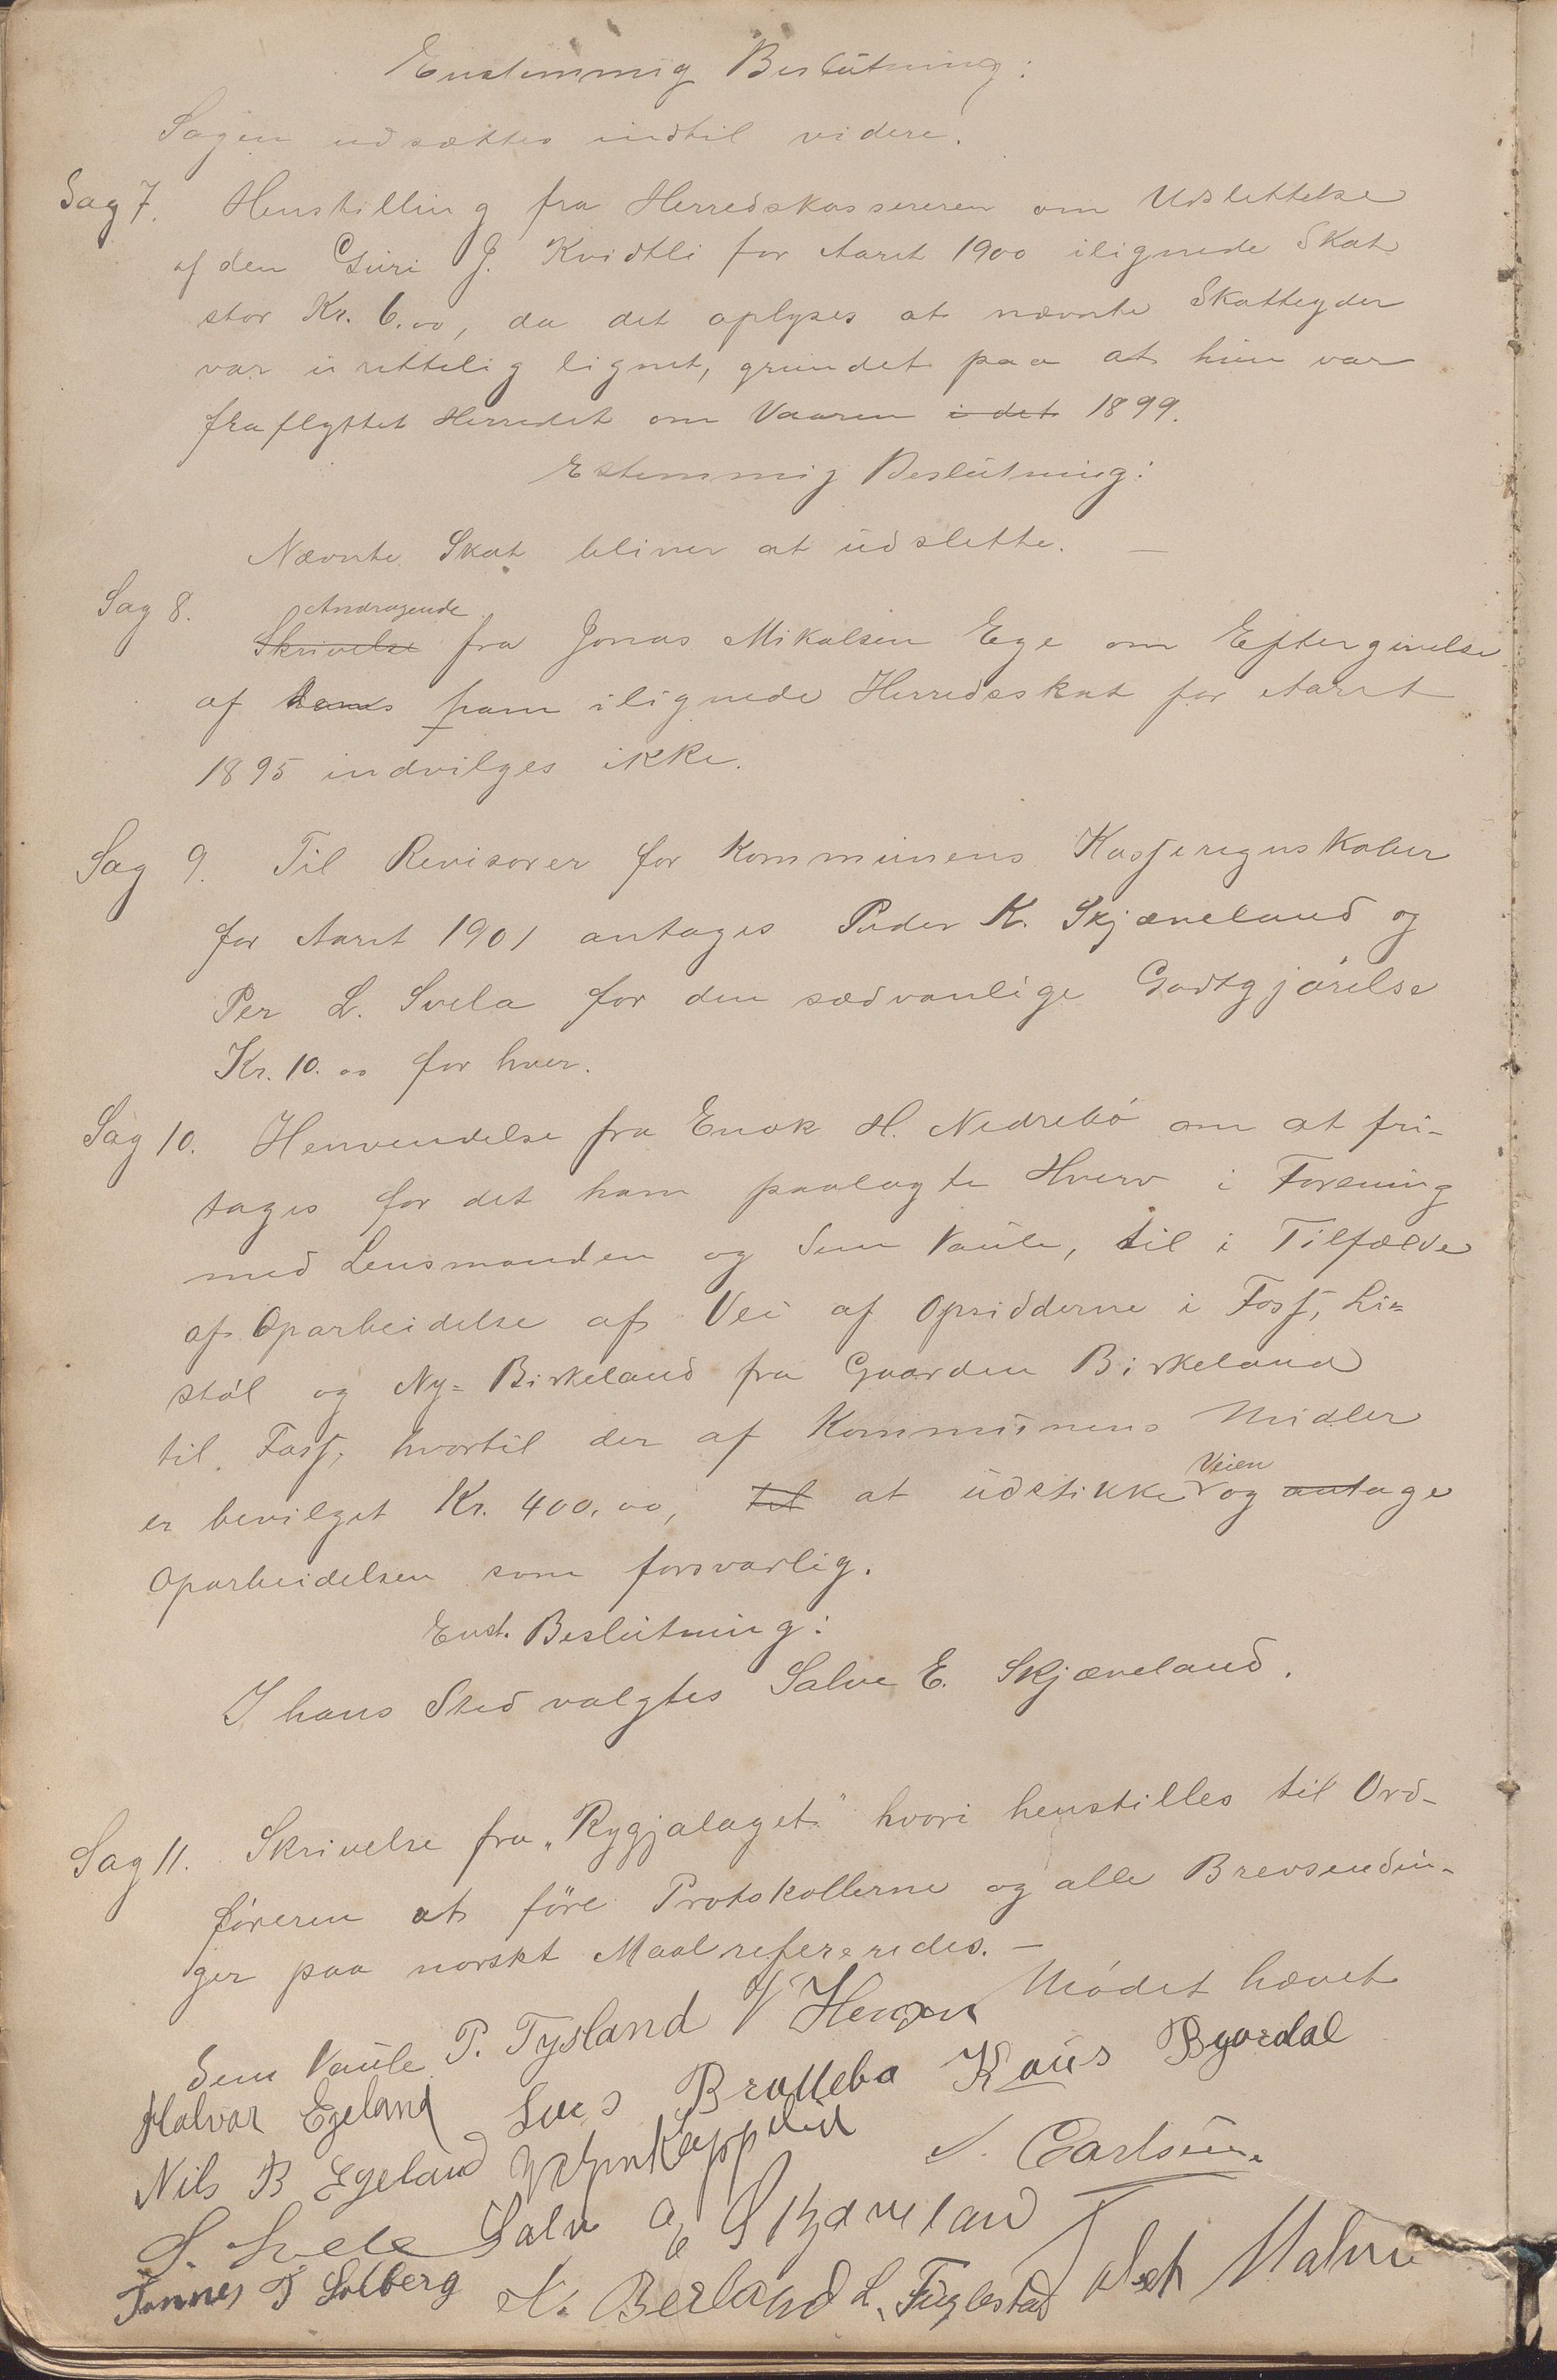 Enstemmig Beslutning:
Sagen udsættes indtil videre.
Sag 7. Henstilling fra Herredskassereren om Udslettelse
af den Guri J. Kvidtli for Aaret 1900 ilignede Skat
stor Kr. 6.00, da det oplyses at nævnte Skatteyder
var urettelig lignet, grundet paa at hun var
fraflyttet Herredet om Vaaren i det 1899.
Estemmig Beslutning:
Nævnte Skat bliver at udslette. —
Sag 8. Andragende
Skrivelse fra Jonas Mikalsen Ege om Eftergivelse
af ham ilignede Herredsskat for Aaret
1895 indvilges ikke.
Sag 9. Til Revisorer for Kommunens Kasseregnskaber
for Aaret 1901 antages Peder K. Skjæveland og
Per L. Svela for den sædvanlige Godtgjørelse
Kr. 10.00 for hver.
Sag 10. Henvendelse fra Enok H. Nedrebø om at fri-
tages for det ham paalagte Hverv i Forening
med Lensmanden og Sven Vaule, til i Tilfælde
af Oparbeidelse af Vei af Opsidderne i Foss, Li=
støl og Ny=Birkeland fra Gaarden Birkeland
til Foss, hvortil der af Kommunens Midler
er bevilget Kr. 400.00, til at udstikke Veien og antage
Oparbeidelsen som forsvarlig.
Enst. Beslutning:
I hans Sted valgtes Salve E. Skjæveland.
Sag 11. Skrivelse fra „Rygjalaget" hvori henstilles til Ord-
føreren at føre Protokollerne og alle Brevsendin-
ger paa norskt Maal refereredes. —
Mødet hævet
Sven Vaule P. Tysland V
Halvar Egeland Bratlebø Byordal
Nils B Egeland Carlsen
S. Svela Salve E Skjæveland
Tønnes T Solberg N. Berland L. Fuglestad Malmei